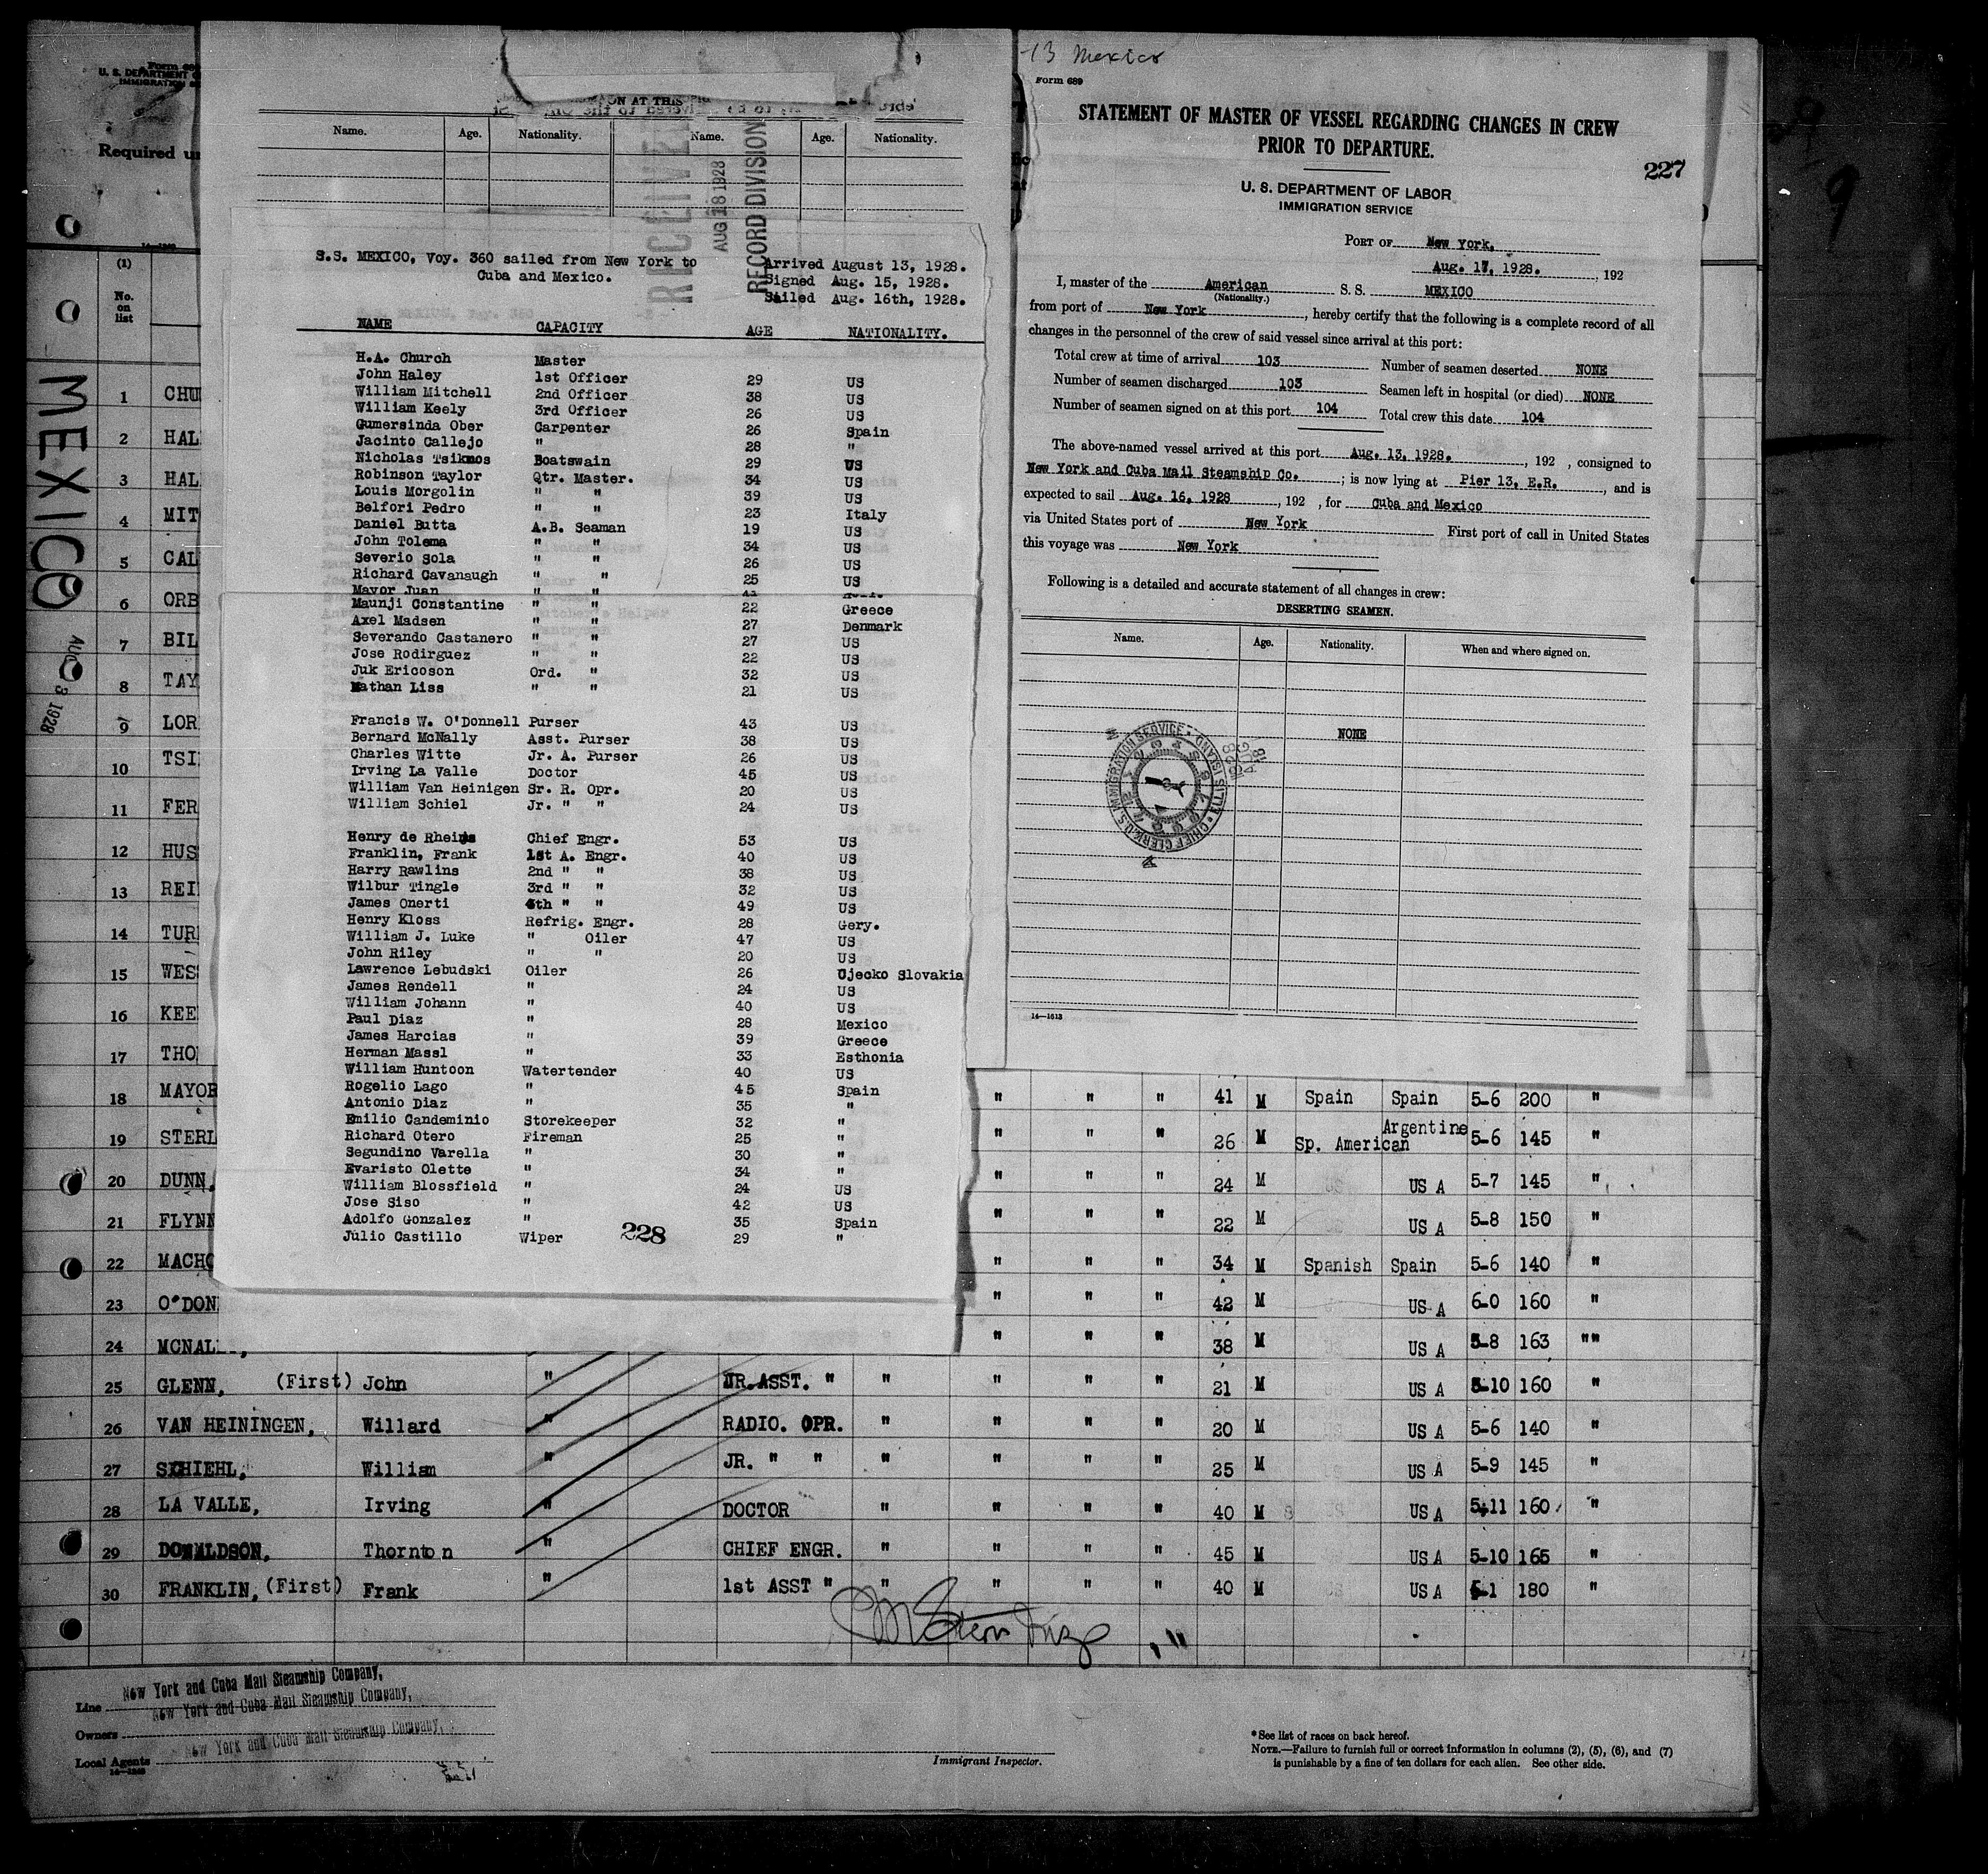 -13 Mexico
Form 689
STATEMENT OF MASTER OF VESSEL REGARDING CHANGES IN CREW
PRIOR TO DEPARTURE.
227
U. S. DEPARTMENT OF LABOR
IMMIGRATION SERVICE
PORT OF New York,
Aug. 17, 1928. , 192
I, master of the American S. S. MEXICO
(Nationality.)
from port of New York , hereby certify that the following is a complete record of all
changes in the personnel of the crew of said vessel since arrival at this port:
Total crew at time of arrival 103 Number of seamen deserted NONE
Number of seamen discharged 103 Seamen left in hospital (or died) NONE
Number of seamen signed on at this port 104 Total crew this date 104
The above-named vessel arrived at this port Aug. 13, 1928. , 192 , consigned to
New York and Cuba Mail Steamship Co. ; is now lying at Pier 13, E.R. , and is
expected to sail Aug. 16, 1928 , 192 , for Cuba and Mexico
via United States port of New York First port of call in United States
this voyage was New York
Following is a detailed and accurate statement of all changes in crew:
DESERTING SEAMEN.
Name. Age. Nationality. When and where signed on.
NONE
U.S. IMMIGRATION SERVICE • ELLIS ISLAND • CHIEF CLERK
14—1513
ON AT THIS
Name. Age. Nationality. Name. Age. Nationality.
RECEIVED
AUG 18 1928
RECORD DIVISION
S.S. MEXICO, Voy. 360 sailed from New York to
Cuba and Mexico.
Arrived August 13, 1928.
Signed Aug. 15, 1928.
Sailed Aug. 16th, 1928.
NAME CAPACITY AGE NATIONALITY.
H.A. Church Master
John Haley 1st Officer 29 US
William Mitchell 2nd Officer 38 US
William Keely 3rd Officer 26 US
Gumersinda Ober Carpenter 26 Spain
Jacinto Callejo " 28 "
Nicholas Tsikmos Boatswain 29 US
Robinson Taylor Qtr. Master. 34 US
Louis Morgolin " " 39 US
Belfori Pedro " " 23 Italy
Daniel Butta A.B. Seaman 19 US
John Tolema " " 34 US
Severio Sola " " 26 US
Richard Cavanaugh " " 25 US
Mayor Juan " " 41
Maunji Constantine " " 22 Greece
Axel Madsen " " 27 Denmark
Severando Castanero " " 27 US
Jose Rodirguez " " 22 US
Juk Ericoson Ord. " 32 US
Nathan Liss " " 21 US
Francis W. O'Donnell Purser 43 US
Bernard McNally Asst. Purser 38 US
Charles Witte Jr. A. Purser 26 US
Irving La Valle Doctor 45 US
William Van Heinigen Sr. R. Opr. 20 US
William Schiel Jr. " " 24 US
Henry de Rheims Chief Engr. 53 US
Franklin, Frank 1st A. Engr. 40 US
Harry Rawlins 2nd " " 38 US
Wilbur Tingle 3rd " " 32 US
James Onerti 4th " " 49 US
Henry Kloss Refrig. Engr. 28 Gery.
William J. Luke " Oiler 47 US
John Riley " " 20 US
Lawrence Lebudski Oiler 26 Cjecko Slovakia
James Rendell " 24 US
William Johann " 40 US
Paul Diaz " 28 Mexico
James Harcias " 39 Greece
Herman Massl " 33 Esthonia
William Huntoon Watertender 40 US
Rogelio Lago " 45 Spain
Antonio Diaz " 35 "
Emilio Candeminio Storekeeper 32 "
Richard Otero Fireman 25 "
Segundino Varella " 30 "
Evaristo Olette " 34 "
William Blossfield " 24 US
Jose Siso " 42 US
Adolfo Gonzalez " 35 Spain
Julio Castillo Wiper 29 "
228
Form 689
U. S. DEPARTMENT
IMMIGRATION
Required un
(1)
No.
on
list
MEXICO
AUG 3 1928
9
1 CHU
2 HAL
3 HAL
4 MIT
5 CAL
6 ORB
7 BIL
8 TAY
9 LOR
10 TSI
11 FER
12 HUS
13 REI
14 TUR
15 WES
16 KEE
17 THO
18 MAYOR " " " 41 M Spain Spain 5-6 200 "
19 STERL " " " 26 M Sp. American Argentine 5-6 145 "
20 DUNN, " " " 24 M US A 5-7 145 "
21 FLYNN " " " 22 M US A 5-8 150 "
22 MACHO " " " 34 M Spanish Spain 5-6 140 "
23 O'DON " " " 42 M US A 6-0 160 "
24 MCNAL " " " 38 M US A 5-8 163 ""
25 GLENN, (First) John " JR.ASST. " " " " 21 M US A 5-10 160 "
26 VAN HEININGEN, Willard " RADIO. OPR. " " " 20 M US A 5-6 140 "
27 SCHIEHL, William " JR. " " " " " 25 M US A 5-9 145 "
28 LA VALLE, Irving " DOCTOR " " " 40 M US A 5-11 160 "
29 DONALDSON, Thornton " CHIEF ENGR. " " " 45 M US A 5-10 165 "
30 FRANKLIN, (First) Frank " 1st ASST " " " " 40 M US A 5-1 180 "
Line New York and Cuba Mail Steamship Company,
Owners New York and Cuba Mail Steamship Company,
Local Agents New York and Cuba Mail Steamship Company,
Immigrant Inspector.
* See list of races on back hereof.
NOTE.—Failure to furnish full or correct information in columns (2), (5), (6), and (7)
is punishable by a fine of ten dollars for each alien. See other side.